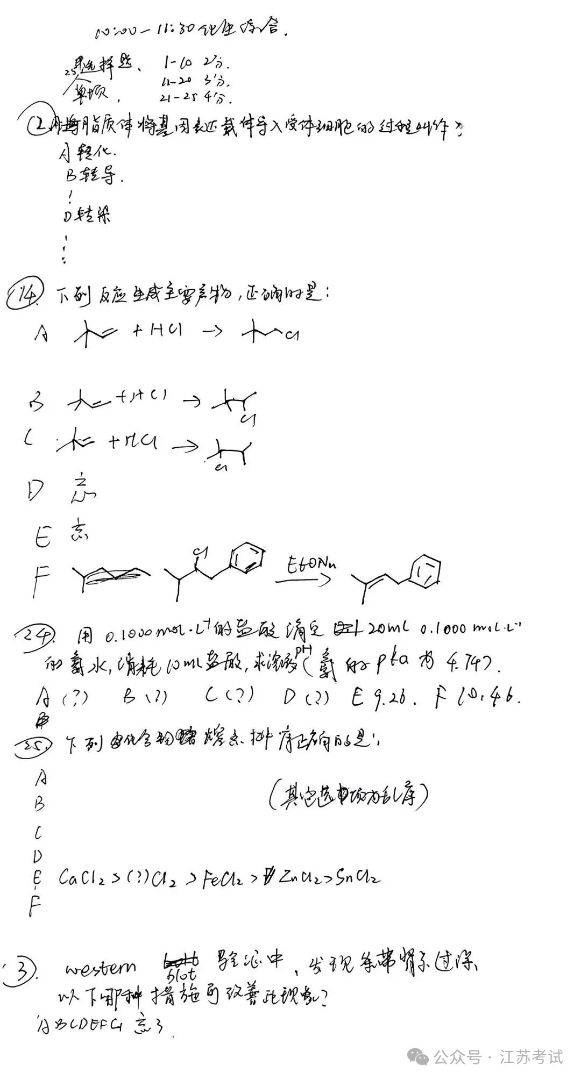 10:00-11:30 化生综合.
单选择题、 1-10 2分.
25个 11-20 3分.
单项, 21-25 4分.
② 用脂质体将基因表达载体导入受体细胞的过程叫作?
A 转化.
B 转导.
D 转染
⑭. 下列反应生成主要产物,正确的是:
A + HCl → Cl
B + HCl → Cl
C + HCl → Cl
D 忘
E 忘
F Cl EtONa
24. 用 0.1000 mol·L⁻¹的盐酸滴定 20ml 0.1000 mol·L⁻¹
的氨水,消耗10ml盐酸,求溶液pH(氨的pka为4.74).
A (?) B (?) C (?) D (?) E 9.26. F 10.46.
25. 下列化合物熔点排序正确的是:
A
B (其它选项为乱序)
C
D
E CaCl2>(?)Cl2>FeCl2>ZnCl2>SnCl2
F
3. western blot 验证中,发现条带显示过深,
以下哪种措施可改善此现象?
ABCDEFG 忘了.
公众号·江苏考试